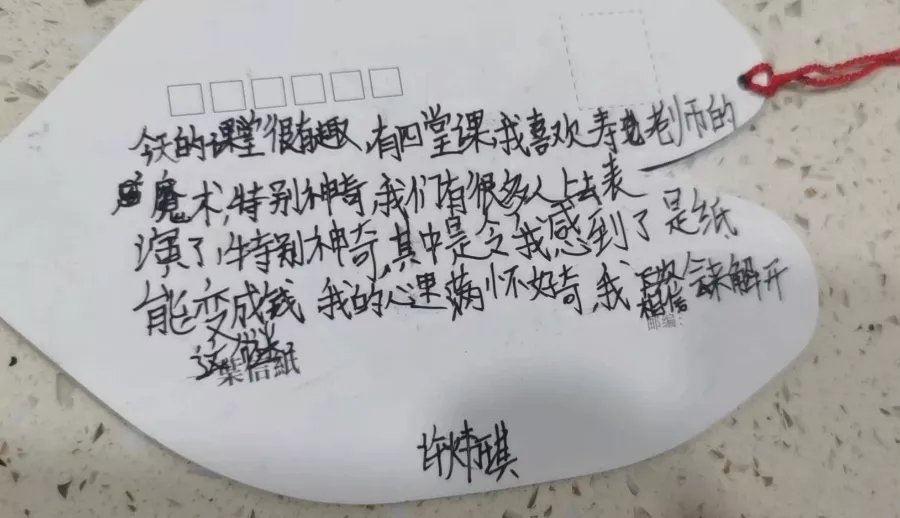 今天的课堂很有趣,有四堂课,我喜欢寿老师的
魔术,特别神奇,我们有很多人上去表
演了,特别神奇,其中是令我感到了是纸
能变成钱 我的心里满怀好奇,我 相信会来解开
邮编:
这个谜
葉信紙
许炜琪